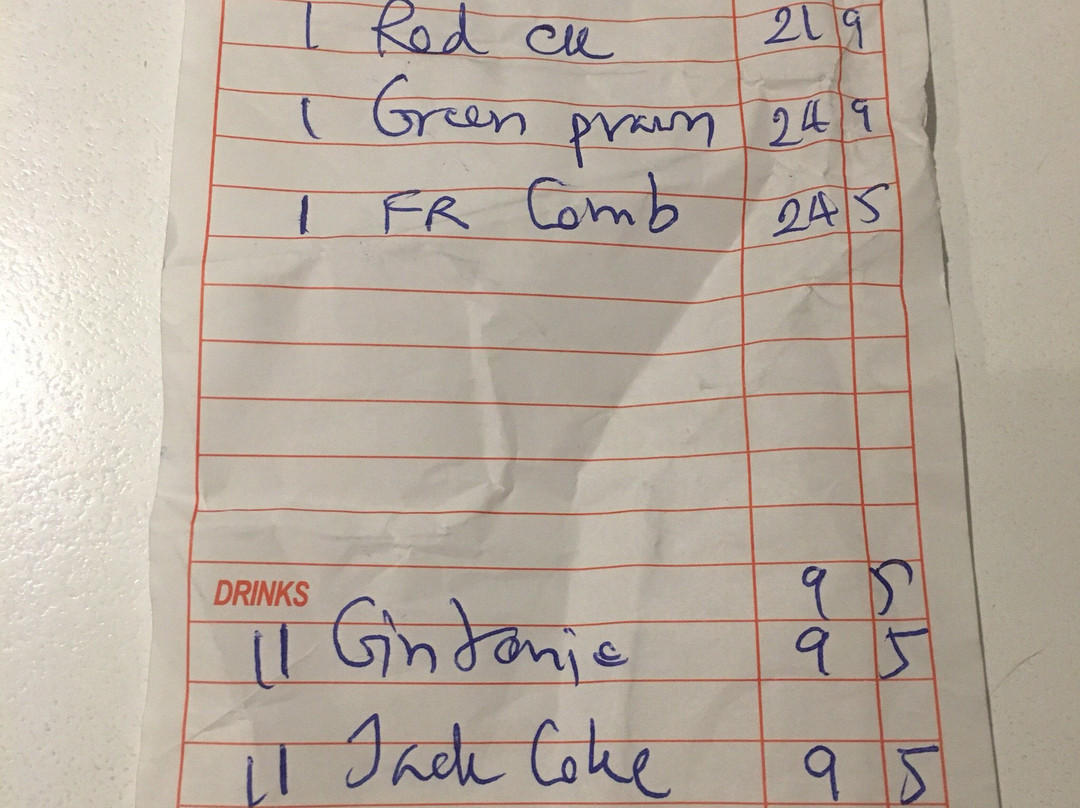 1 Red cu 21 9
1 Green prawn 24 9
1 FR Comb 24 5
DRINKS 9 5
11 Gin tonic 9 5
11 Jack Coke 9 5